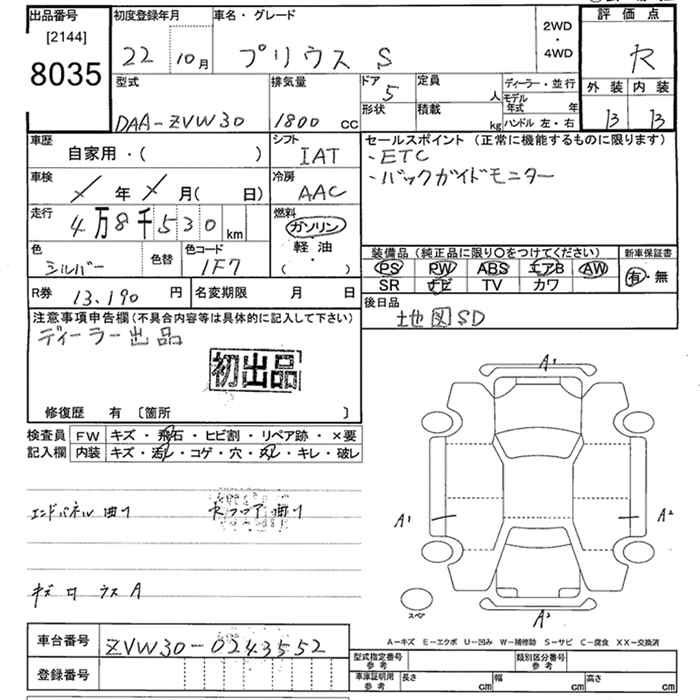 出品番号 初度登録年月 車名・グレード 評価点
[2144] 22 10月 プリウス S 2WD・4WD R
8035
型式 排気量 ドア 定員 ディーラー・並行 外装 内装
DAA-ZVW30 1800 cc 5 人 モデル年式 年 B B
形状 積載 kg ハンドル 左・右
車歴 シフト セールスポイント (正常に機能するものに限ります)
自家用・( ) IAT ・ETC
車検 冷房 ・バックガイドモニター
年 月( 日) AAC
走行 燃料
4万8千530 km ガソリン
軽油
( )
色 色替 色コード 装備品 (純正品に限り○をつけてください) 新車保証書
シルバー 1F7 PS PW ABS エアB AW 有・無
SR ナビ TV カワ
R券 13,190 円 名変期限 月 日 後日品
地図SD
注意事項申告欄(不具合内容等は具体的に記入して下さい)
ディーラー出品
初出品
修復歴 有 〔箇所 〕
検査員 FW キズ・飛石・ヒビ割・リペア跡・×要
記入欄 内装 キズ・汚レ・コゲ・穴・スレ・キレ・破レ
A1
エンドパネル曲り
A1 A2
スペア
A2
A-キズ E-エクボ U-凹み W-補修跡 S-サビ C-腐食 XX-交換済
車台番号 ZVW30-0243552
登録番号
型式指定番号 参考 類別区分番号 参考
車庫証明用 参考 長さ cm 幅 cm 高さ cm